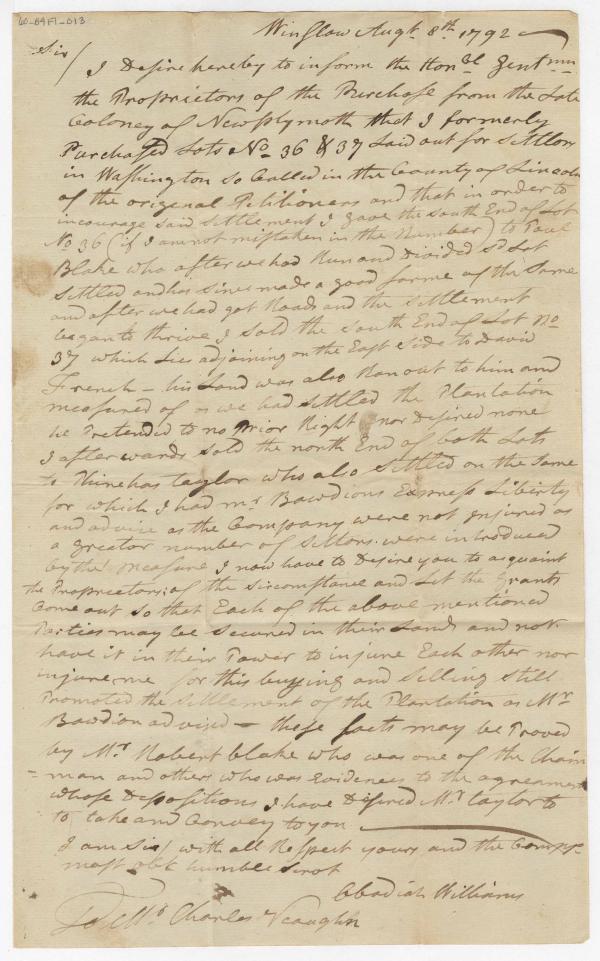 60-0491-013
Winslow Augt 8th 1792
Sir/
I Desire hereby to inform the Honbl Gentmn
the Proprietors of the Purchase from the Late
Coloney of New plymoth that I formerly
Purchased Lots No 36 & 37 Laid out for Settlors
in Washington so Called in the County of Lincoln
of the original Petitioners and that in order to
incourage said settlement I gave the south End of Lot
No 36 (if I am not mistaken in the Number) to Paul
Blake who after we had Run and Divided sd Lot
settled and has sines made a good farme of the Same
and after we had got Roads and the settlement
began to thrive I sold the south End of Lot No
37 which Lies adjoining on the East side to David
French – his Land was also Ran out to him and
measured of as we had settled the Plantation
he Pretended to no Prior Right nor Desired none
I after wards sold the north End of both Lots
to Phinehas taylor who also settled on the same
for which I had mr Bawdions Express Liberty
and advise as the Company were not injured as
a greator number of settlors were introduced
by the measure I now have to Desire you to acquaint
the Proprietors of the sircomstance and Let the Grants
Come out so that Each of the above mentioned
Parties may be secured in their Lands and not
have it in their Power to injure Each other nor
injure me for this buying and selling still
Promoted the settlement of the Plantation as Mr
Bawdion advised – these facts may be Proved
by Mr Robert blake who was one of the Chain
=man and others who was Evidences to the agreament
whose Depositions I have Desired Mr taylor to
to take and Convey to you
I am Sir with all Respect yours and the Compys
most obt humble Servt
Obadiah Williams
To Mr Charles Vaughn